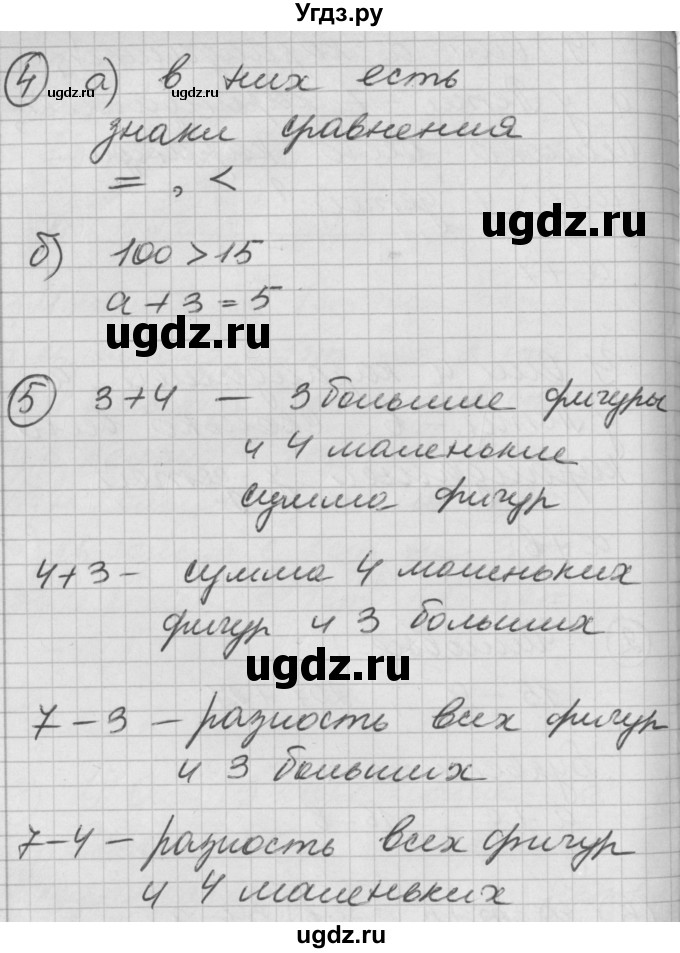 Угдз.ру
4 а) в них есть
ugdz.ru ugdz.ru ugdz.ru
знаки сравнения
= , <
ugdz.ru
б) 100 > 15
а + 3 = 5
ugdz.ru
5 3+4 — 3 большие фигуры
и 4 маленькие
сумма фигур
4+3 - сумма 4 маленьких
фигур и 3 больших
ugdz.ru
7 - 3 - разность всех фигур
и 3 больших
7-4 - разность всех фигур
и 4 маленьких
ugdz.ru